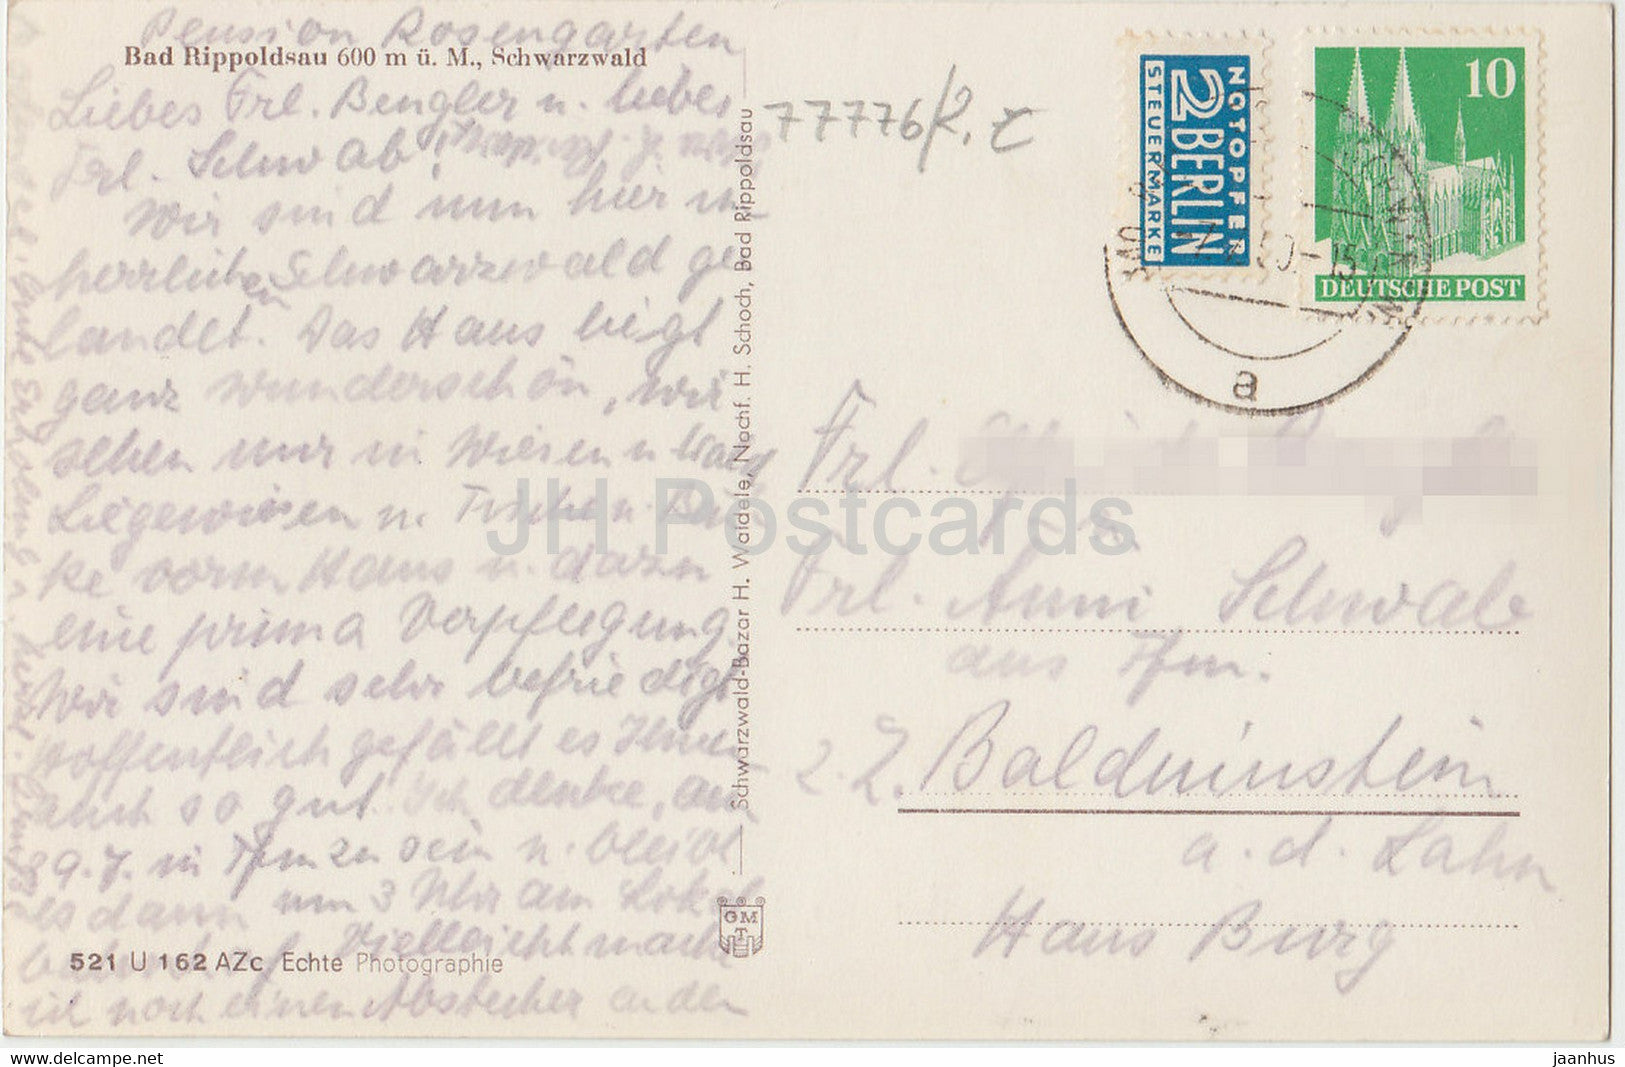 Pension Rosengarten
Bad Rippoldsau 600 m ü. M., Schwarzwald
Liebes Frl. Bengler u. liebes
Frl. Schwab!
Wir sind nun hier im
herrlichen Schwarzwald ge
landet. Das Haus liegt
ganz wunderschön, wir
sehen nur in Wiesen u. Wald
Liegewiesen u. Tischen Bän
ke vorm Haus u. dazu
eine prima Verpflegung
Wir sind sehr befriedigt
hoffentlich gefällt es Ihnen
auch so gut. Ich denke, am
9.7. in Ffm zu sein u. bleibt
es dann um 3 Uhr am Lokal
Vielleicht mache
ich noch einen Abstecher an den
521 U 162 AZc Echte Photographie
Schwarzwald-Bazar H. Waidele, Nachf. H. Schoch, Bad Rippoldsau
GMT
77776/2. Z
NOTOPFER
2 BERLIN
STEUERMARKE
10
DEUTSCHE POST
a
Frl.
Frl. Anni Schwab
aus Ffm.
z. Z. Balduinstein
a. d. Lahn
Haus Burg
JH Postcards
521 U 162 AZc www.delcampe.net
jaanhus